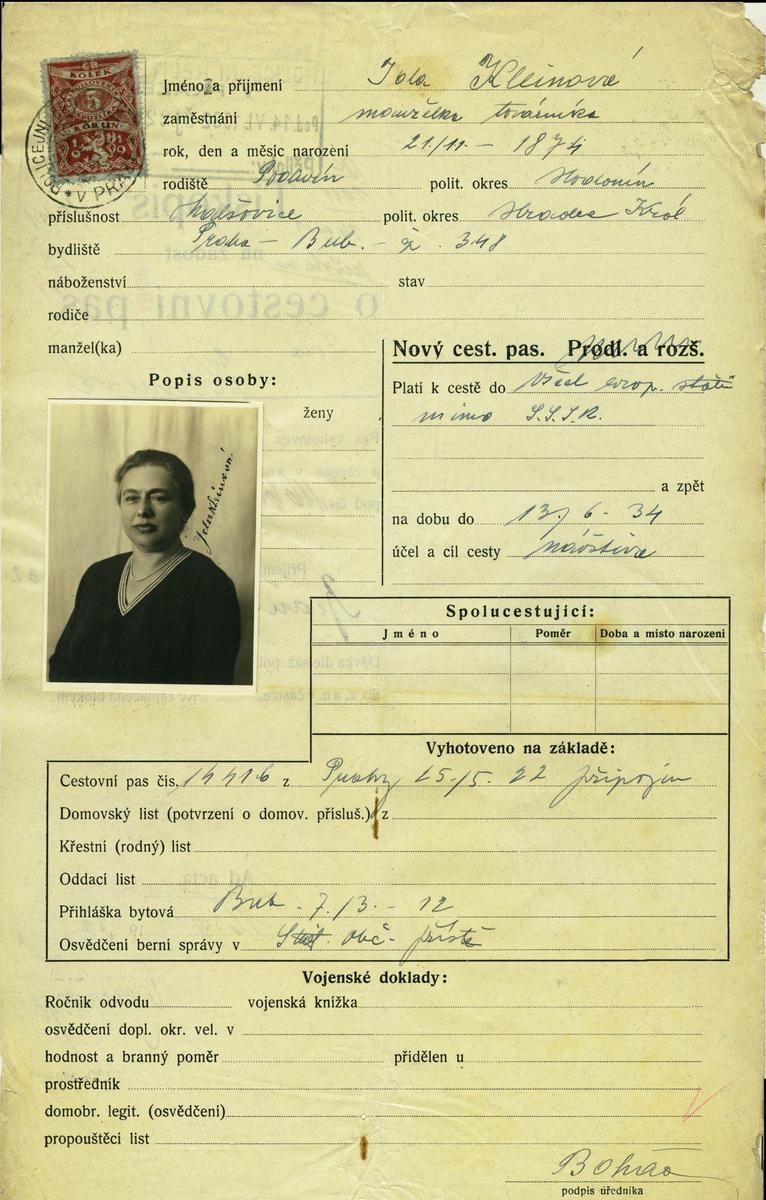 KOLEK
5
KORUN
V PRA
Jméno a příjmení Ida Kleinová
zaměstnání manželka továrníka
rok, den a měsíc narození 21/11 - 1874
rodiště Podivín polit. okres Hodonín
příslušnost polit. okres Hradec Král
bydliště Praha - Bub. - čp. 348
náboženství stav
rodiče
manžel(ka)
Nový cest. pas. Prodl. a rozš.
Popis osoby:
Platí k cestě do všech evrop. států
ženy
mimo S.S.S.R.
a zpět
na dobu do 13/6 - 34
účel a cíl cesty návštěva
Ida Kleinová
Spolucestující:
Jméno Poměr Doba a místo narození
Vyhotoveno na základě:
Cestovní pas čís. 14416 z Prahy 15./5. 22 připojen
Domovský list (potvrzení o domov. přísluš.) z
Křestní (rodný) list
Oddací list
Přihláška bytová Bub - 7./3. - 12
Osvědčení berní správy v obč.
Vojenské doklady:
Ročník odvodu vojenská knížka
osvědčení dopl. okr. vel. v
hodnost a branný poměr přidělen u
prostředník
domobr. legit. (osvědčení)
propouštěcí list
podpis úředníka